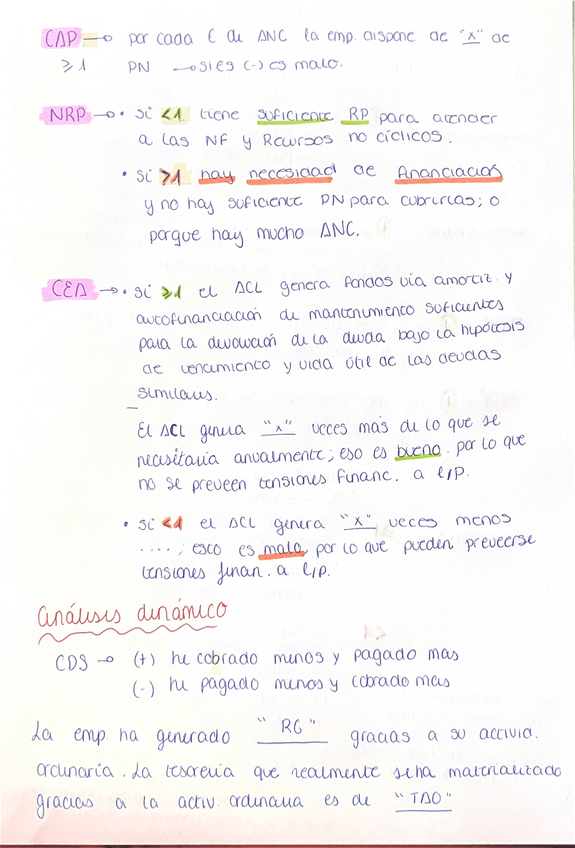 CAP → por cada € de ANC la emp. dispone de "x" de
≥1 PN → si es (-) es malo.
NRP → • si <1 tiene suficiente RP para atender
a las NF y Recursos no cíclicos.
• si >1 hay necesidad de financiación
y no hay suficiente PN para cubrirlas; o
porque hay mucho ANC.
CEA → • si ≥1 el ACL genera fondos vía amortiz. y
autofinanciación de mantenimiento suficientes
para la devolución de la deuda bajo la hipótesis
de vencimiento y vida útil de las deudas
similares.
El ACL genera "x" veces más de lo que se
necesitaria anualmente; eso es bueno, por lo que
no se preveen tensiones financ. a l/p.
• si <1 el ACL genera "x" veces menos
....; esto es malo, por lo que pueden preveerse
tensiones finan. a l/p.
análisis dinámico
CDS → (+) he cobrado menos y pagado mas
(-) he pagado menos y cobrado mas
La emp. ha generado "RG" gracias a su activid.
ordinaria. La tesorería que realmente se ha materializado
gracias a la activ. ordinaria es de "TAO"